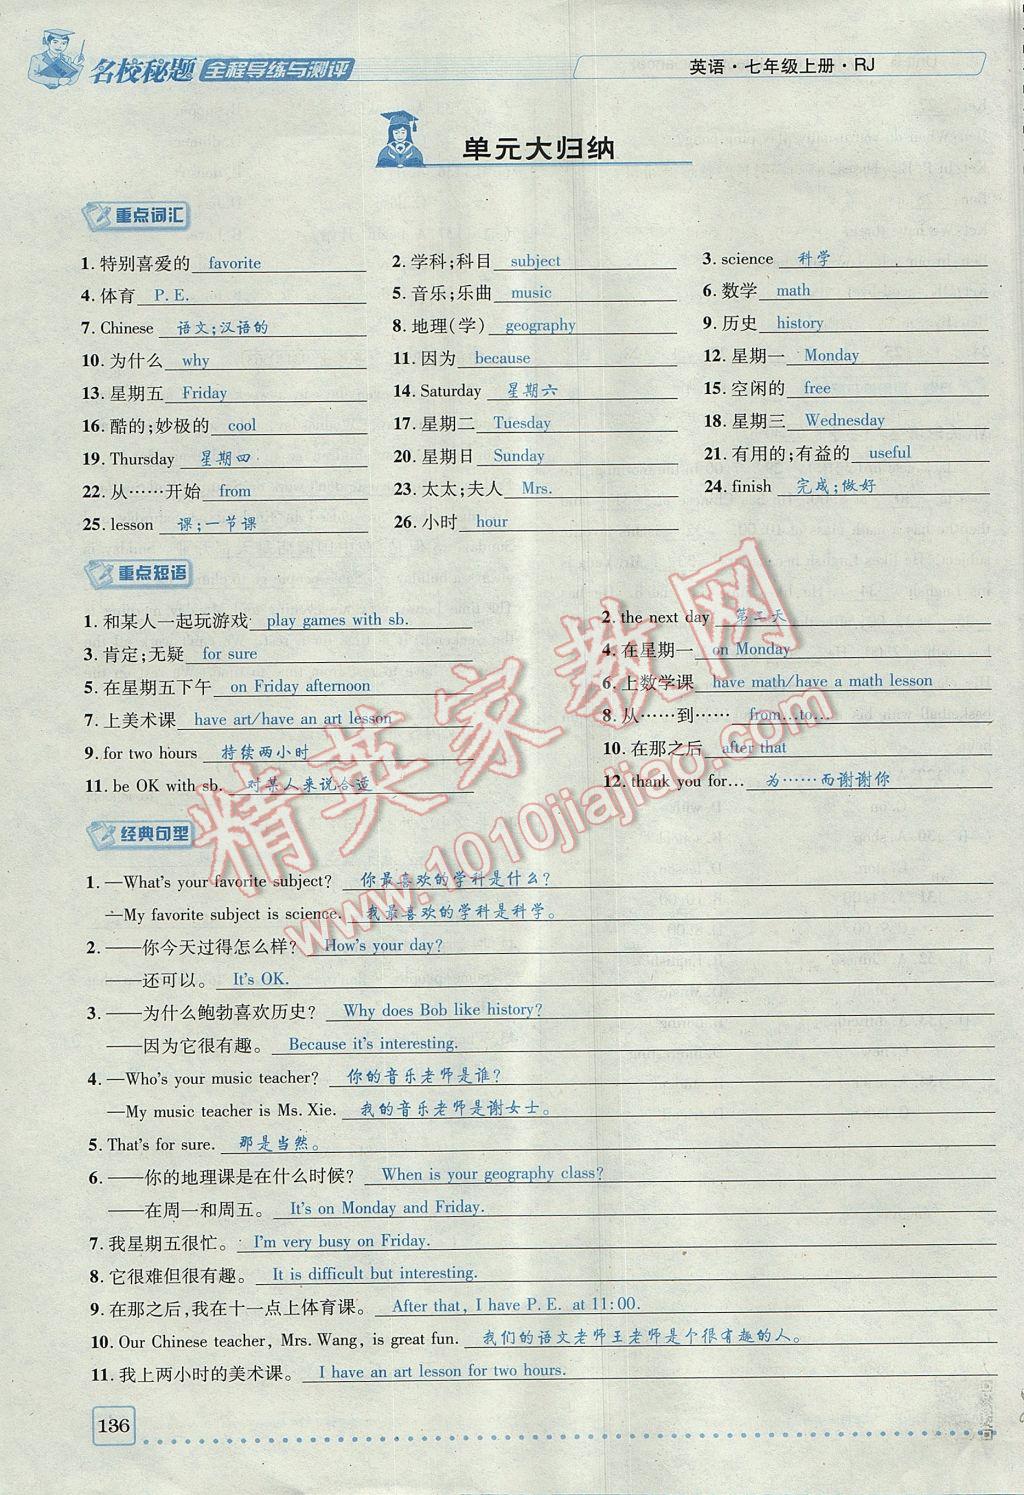 名校秘题 全程导练与测评
英语·七年级上册·RJ
单元大归纳
重点词汇
1. 特别喜爱的 favorite 2. 学科;科目 subject 3. science 科学
4. 体育 P. E. 5. 音乐;乐曲 music 6. 数学 math
7. Chinese 语文;汉语的 8. 地理(学) geography 9. 历史 history
10. 为什么 why 11. 因为 because 12. 星期一 Monday
13. 星期五 Friday 14. Saturday 星期六 15. 空闲的 free
16. 酷的;妙极的 cool 17. 星期二 Tuesday 18. 星期三 Wednesday
19. Thursday 星期四 20. 星期日 Sunday 21. 有用的;有益的 useful
22. 从……开始 from 23. 太太;夫人 Mrs. 24. finish 完成;做好
25. lesson 课;一节课 26. 小时 hour
重点短语
1. 和某人一起玩游戏 play games with sb. 2. the next day 第二天
3. 肯定;无疑 for sure 4. 在星期一 on Monday
5. 在星期五下午 on Friday afternoon 6. 上数学课 have math/have a math lesson
7. 上美术课 have art/have an art lesson 8. 从……到…… from…to…
9. for two hours 持续两小时 10. 在那之后 after that
11. be OK with sb. 对某人来说合适 12. thank you for… 为……而谢谢你
经典句型
1. —What's your favorite subject? 你最喜欢的学科是什么?
—My favorite subject is science. 我最喜欢的学科是科学。
2. ——你今天过得怎么样? How's your day?
——还可以。 It's OK.
3. ——为什么鲍勃喜欢历史? Why does Bob like history?
——因为它很有趣。 Because it's interesting.
4. —Who's your music teacher? 你的音乐老师是谁?
—My music teacher is Ms. Xie. 我的音乐老师是谢女士。
5. That's for sure. 那是当然。
6. ——你的地理课是在什么时候? When is your geography class?
——在周一和周五。 It's on Monday and Friday.
7. 我星期五很忙。 I'm very busy on Friday.
8. 它很难但很有趣。 It is difficult but interesting.
9. 在那之后,我在十一点上体育课。 After that, I have P. E. at 11:00.
10. Our Chinese teacher, Mrs. Wang, is great fun. 我们的语文老师王老师是个很有趣的人。
11. 我上两小时的美术课。 I have an art lesson for two hours.
136
精英家教网
www.1010jiajiao.com